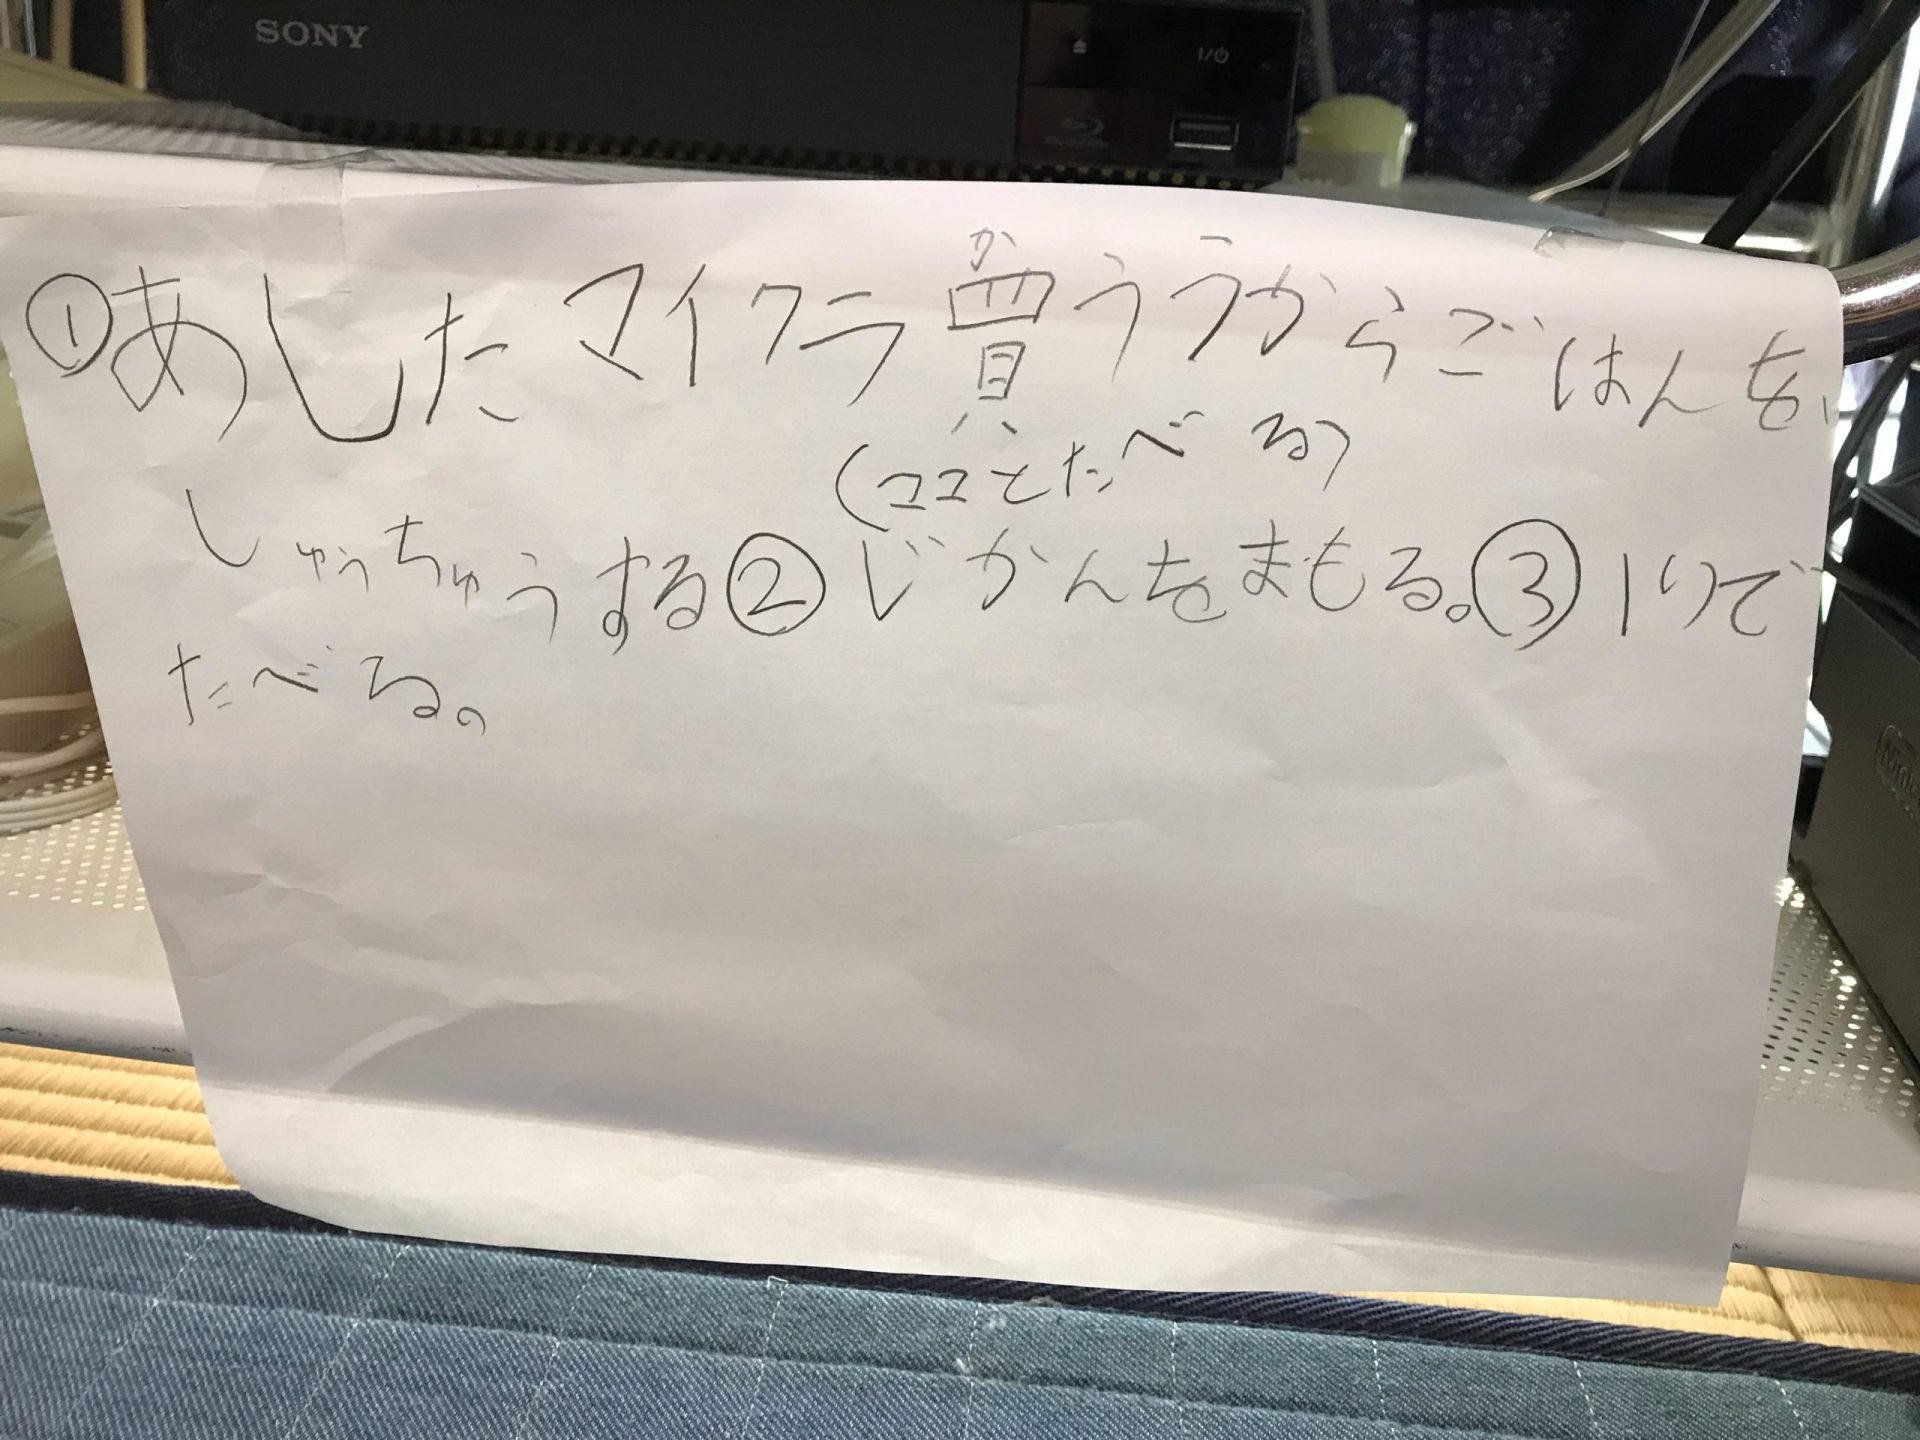 SONY
I/⏻
か
①あしたマイクラ買ううからごはんを、
(ココとたべる)
しゅうちゅうする②じかんをまもる。③1りで
たべる。